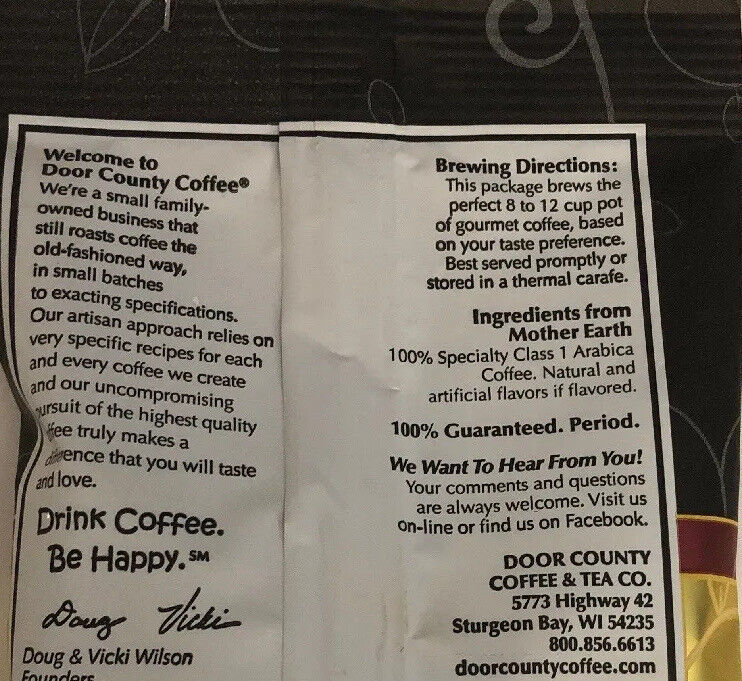 Welcome to
Door County Coffee®
We're a small family-
owned business that
still roasts coffee the
old-fashioned way,
in small batches
to exacting specifications.
Our artisan approach relies on
very specific recipes for each
and every coffee we create
and our uncompromising
pursuit of the highest quality
coffee truly makes a
difference that you will taste
and love.
Drink Coffee.
Be Happy.℠
Doug Vicki
Doug & Vicki Wilson
Founders
Brewing Directions:
This package brews the
perfect 8 to 12 cup pot
of gourmet coffee, based
on your taste preference.
Best served promptly or
stored in a thermal carafe.
Ingredients from
Mother Earth
100% Specialty Class 1 Arabica
Coffee. Natural and
artificial flavors if flavored.
100% Guaranteed. Period.
We Want To Hear From You!
Your comments and questions
are always welcome. Visit us
on-line or find us on Facebook.
DOOR COUNTY
COFFEE & TEA CO.
5773 Highway 42
Sturgeon Bay, WI 54235
800.856.6613
doorcountycoffee.com